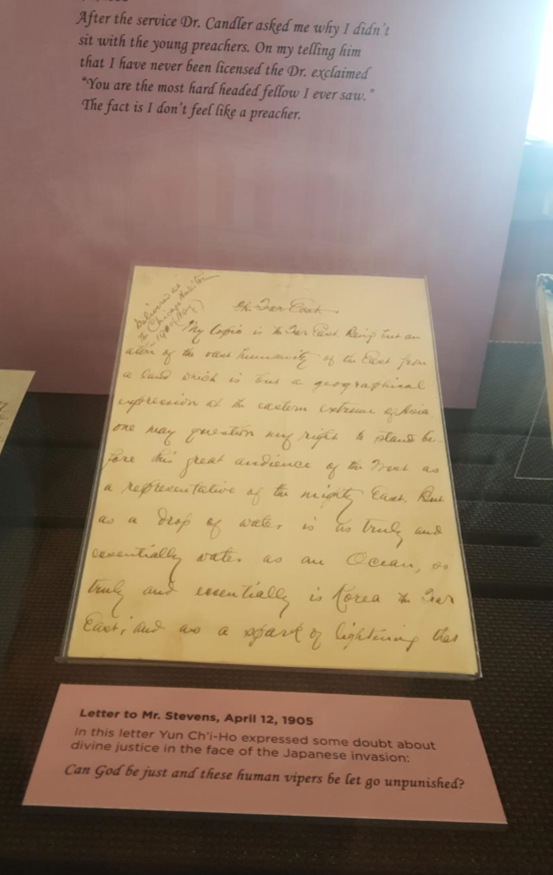 After the service Dr. Candler asked me why I didn't
sit with the young preachers. On my telling him
that I have never been licensed the Dr. exclaimed
"You are the most hard headed fellow I ever saw."
The fact is I don't feel like a preacher.
Delivered at
the Chicago
The Far East.
My topic is the Far East. Being but an
atom of the vast humanity of the East from
a land which is but a geographical
expression at the eastern extreme of Asia
one may question my right to stand be-
fore this great audience of the West as
a representative of the mighty East. But
as a drop of water is as truly and
essentially water as an Ocean, so
truly and essentially is Korea the Far
East; and as a spark of lightning
Letter to Mr. Stevens, April 12, 1905
In this letter Yun Ch'i-Ho expressed some doubt about
divine justice in the face of the Japanese invasion:
Can God be just and these human vipers be let go unpunished?